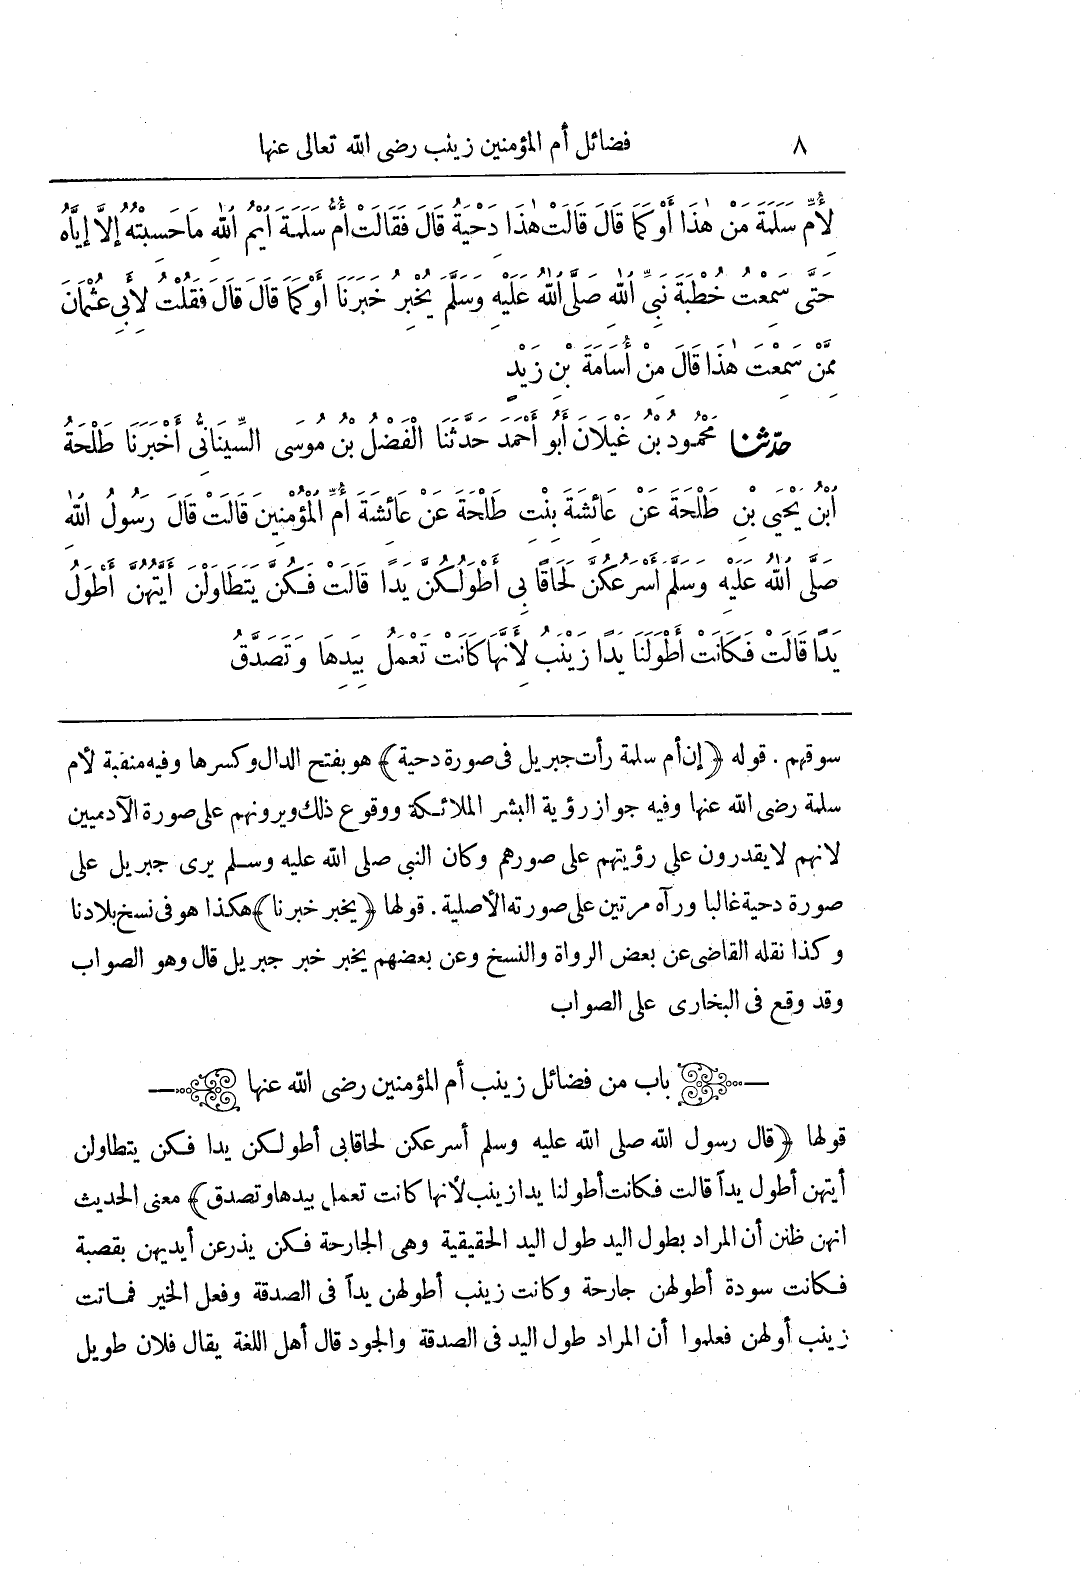 ٨ فضائل أم المؤمنين زينب رضى الله تعالى عنها
لِأُمِّ سَلَمَةَ مَنْ هٰذَا أَوْ كَمَا قَالَ قَالَتْ هٰذَا دَحْيَةُ قَالَ فَقَالَتْ أُمُّ سَلَمَةَ اَيْمُ اللهِ مَا حَسِبْتُهُ إِلَّا إِيَّاهُ
حَتَّى سَمِعْتُ خُطْبَةَ نَبِيِّ اللهِ صَلَّى اللهُ عَلَيْهِ وَسَلَّمَ يُخْبِرُ خَبَرَنَا أَوْ كَمَا قَالَ قَالَ فَقُلْتُ لِأَبِي عُثْمَانَ
مِمَّنْ سَمِعْتَ هٰذَا قَالَ مِنْ أُسَامَةَ بْنِ زَيْدٍ
حدّثنا مَحْمُودُ بْنُ غَيْلَانَ أَبُو أَحْمَدَ حَدَّثَنَا الْفَضْلُ بْنُ مُوسَى السِّينَانِيُّ أَخْبَرَنَا طَلْحَةُ
ابْنُ يَحْيَى بْنِ طَلْحَةَ عَنْ عَائِشَةَ بِنْتِ طَلْحَةَ عَنْ عَائِشَةَ أُمِّ الْمُؤْمِنِينَ قَالَتْ قَالَ رَسُولُ اللهِ
صَلَّى اللهُ عَلَيْهِ وَسَلَّمَ أَسْرَعُكُنَّ لَحَاقًا بِي أَطْوَلُكُنَّ يَدًا قَالَتْ فَكُنَّ يَتَطَاوَلْنَ أَيَّتُهُنَّ أَطْوَلُ
يَدًا قَالَتْ فَكَانَتْ أَطْوَلَنَا يَدًا زَيْنَبُ لِأَنَّهَا كَانَتْ تَعْمَلُ بِيَدِهَا وَتَصَدَّقُ
سوقهم . قوله ﴿إن أم سلمة رأت جبريل فى صورة دحية﴾ هو بفتح الدال وكسرها وفيه منقبة لأم
سلمة رضى الله عنها وفيه جواز رؤية البشر الملائكة ووقوع ذلك ويرونهم على صورة الآدميين
لانهم لا يقدرون على رؤيتهم على صورهم وكان النبى صلى الله عليه وسلم يرى جبريل على
صورة دحية غالبا ورآه مرتين على صورته الأصلية . قولها ﴿يخبر خبرنا﴾ هكذا هو فى نسخ بلادنا
وكذا نقله القاضى عن بعض الرواة والنسخ وعن بعضهم يخبر خبر جبريل قال وهو الصواب
وقد وقع فى البخارى على الصواب
باب من فضائل زينب أم المؤمنين رضى الله عنها
قولها ﴿قال رسول الله صلى الله عليه وسلم أسرعكن لحاقا بى أطولكن يدا فكن يتطاولن
أيتهن أطول يداً قالت فكانت أطولنا يدا زينب لأنها كانت تعمل بيدها وتصدق﴾ معنى الحديث
انهن ظنن أن المراد بطول اليد طول اليد الحقيقية وهى الجارحة فكن يذرعن أيديهن بقصبة
فكانت سودة أطولهن جارحة وكانت زينب أطولهن يداً فى الصدقة وفعل الخير فماتت
زينب أولهن فعلموا أن المراد طول اليد فى الصدقة والجود قال أهل اللغة يقال فلان طويل